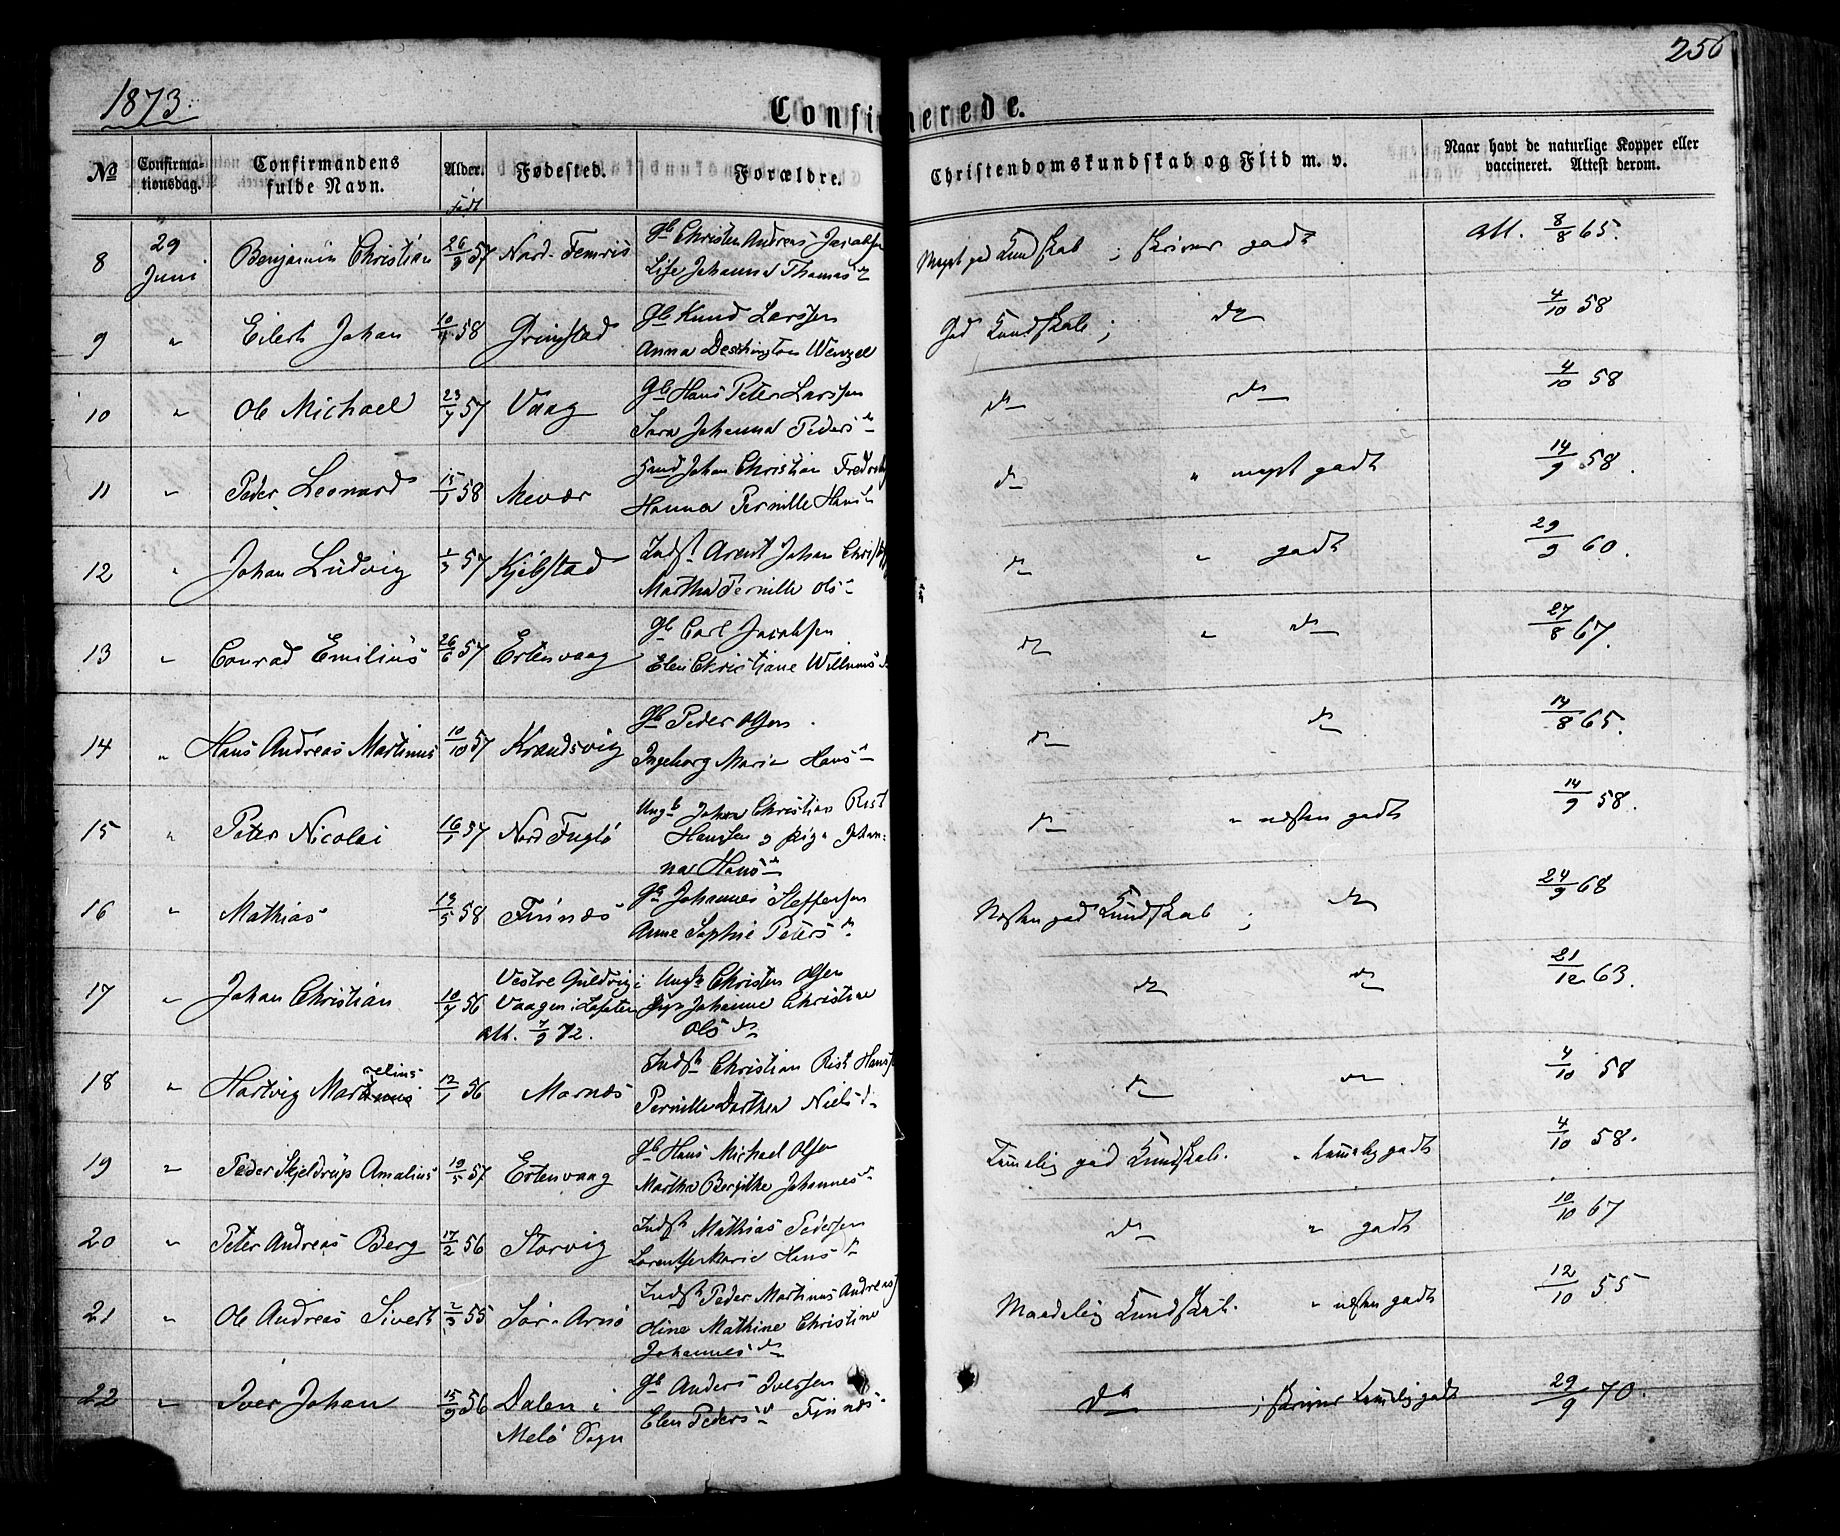 256
1873.
Confirmerede.
No
Confirma-
tionsdag.
Confirmandens
fulde Navn.
Alder.
Født
Fødested.
Forældre.
Christendomskundskab og Flid m. v.
Naar havt de naturlige Kopper eller
vaccineret. Attest derom.
8 29 Juni Benjamin Christian 57 Nord-Femris
Gb Christen Andreas Jacobsen
Johanna Thomasd
Meget god Kundskab ; skriver godt att. 8/8 65.
9 " Eilert Johan 58 Grimstad
Gb Knud Larssen
Anna Wenzel
God Kundskab ; do 4/10 58
10 " Ole Michael 57 Vaag
Gb Hans Peter Larssen
Sara Johanna Pedersd
do do 4/10 58
11 " Peder Leonard 58 Mevær
Johan Christian
Hanna Pernille Hansd
do " meget godt 14/9 58.
12 " Johan Ludvig 57 Kjelstad
Indst Arent Johan
Martha Pernille Olsd
do " godt 29/9 60.
13 " Conrad Emilius 26/6 57 Ertenvaag
Gb Carl Jacobsen
Elen Christiane
do " do 27/8 67.
14 " Hans Andreas Martinus 10/10 57 Krandsvig
Gb Peder Olsen
Ingeborg Maria Hansd
do do 14/8 65.
15 " Peter Nicolai 57 Nord Fuglø
Ungk Johan Christian Rist
Hansen og pige Johan-
na Hansd
do " næsten godt 14/9 58.
16 " Mathias 58 Finnæs
Johannes Steffensen
Anne Sophie Petersd
Næsten god Kundskab ; do 24/9 68
17 " Johan Christian 56
Vestre Guldvig i
Vaagen i Lofoten
att. 7/9 72.
Ungk Christen Olsen
Johanne Christine
Olsd
do do 21/12 63.
18 " Hartvig Martinus elius 56 Marnæs
Indst Christian Rist
Pernille Dorthea Nielsd
do do 4/10 58
19 " Peder Skjeldrup Amalius 57 Ertenvaag
Gb Hans Michael Olsen
Martha Bergithe Johannesd
Temmelig god Kundskab. " temmelig godt 4/10 58.
20 " Peter Andreas Berg 17/2 56 Storvig
Indst Mathias Pedersen
Lorentse Marie Hansd
do " godt 10/10 67
21 " Ole Andreas Sivert 2/3 55 Sør-Arnø
Indst Peder Martinus
Oline Mathine Christine
Johannesd
Maadelig Kundskab. " næsten godt 12/10 55
22 " Iver Johan 15/9 56
Dalen i
Melø Sogn
Gb Anders Iverssen
Elen Pedersd Finnæs
do ; skriver temmelig godt 29/9 70.